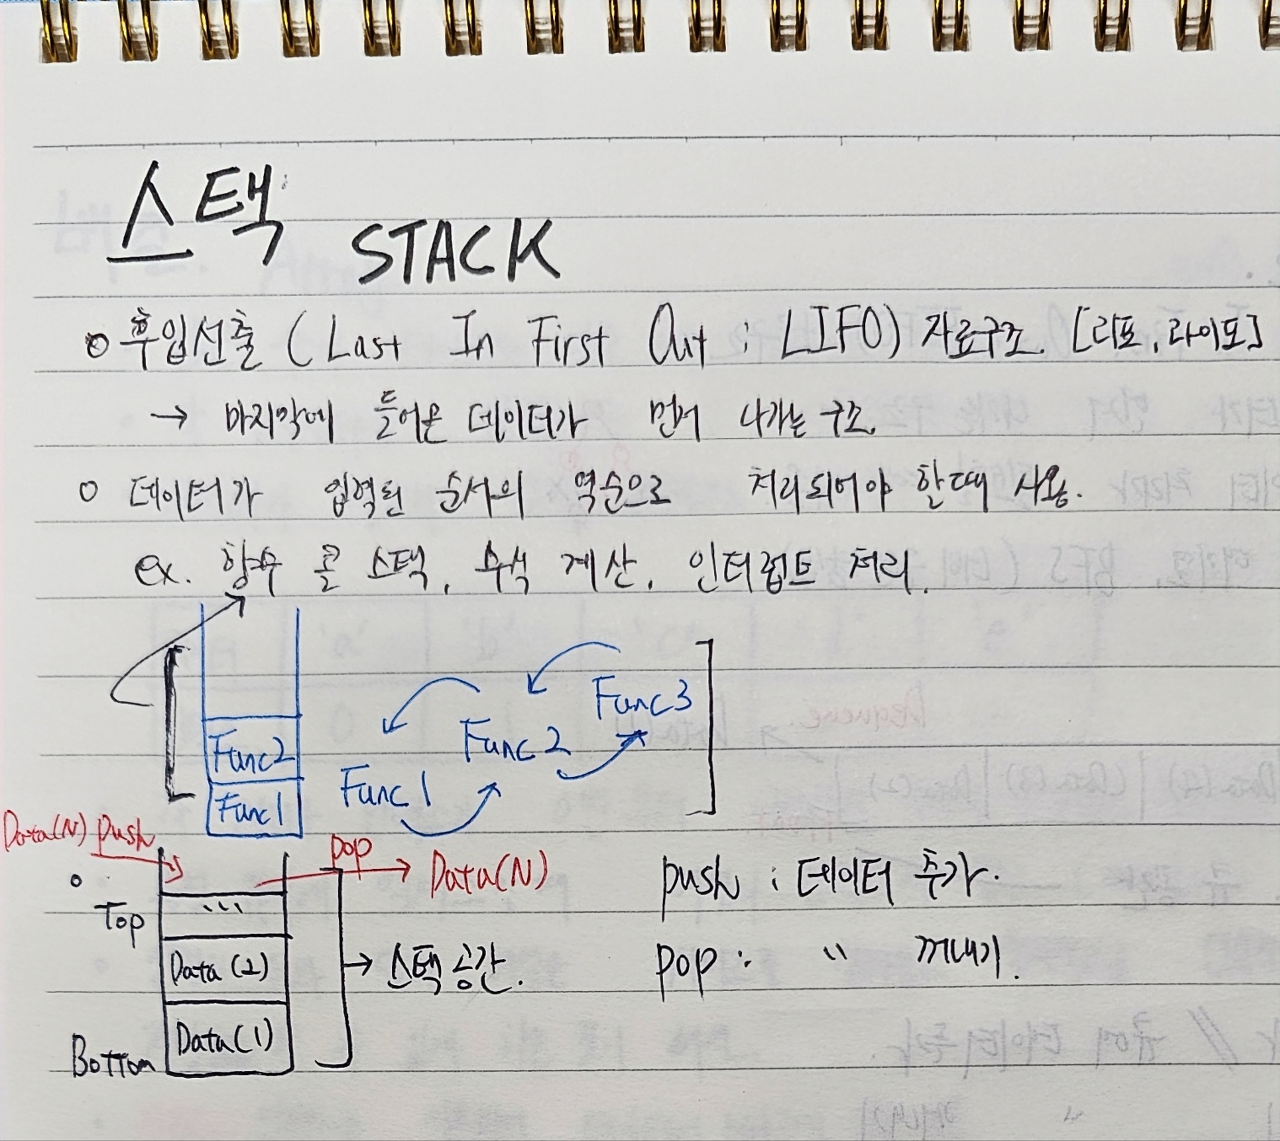 스택
STACK
후입선출 (Last In First Out ; LIFO) 자료구조. [리포, 라이포]
→ 마지막에 들어온 데이터가 먼저 나가는 구조.
데이터가 입력된 순서의 역순으로 처리되어야 할 때 사용.
ex. 함수 콜 스택, 수식 계산, 인터럽트 처리.
Func2
Func1
Func1
Func2
Func3
Data(N) push
pop
Data(N)
Top
...
Data(2)
Data(1)
Bottom
→ 스택 공간.
push : 데이터 추가.
pop : " 꺼내기.